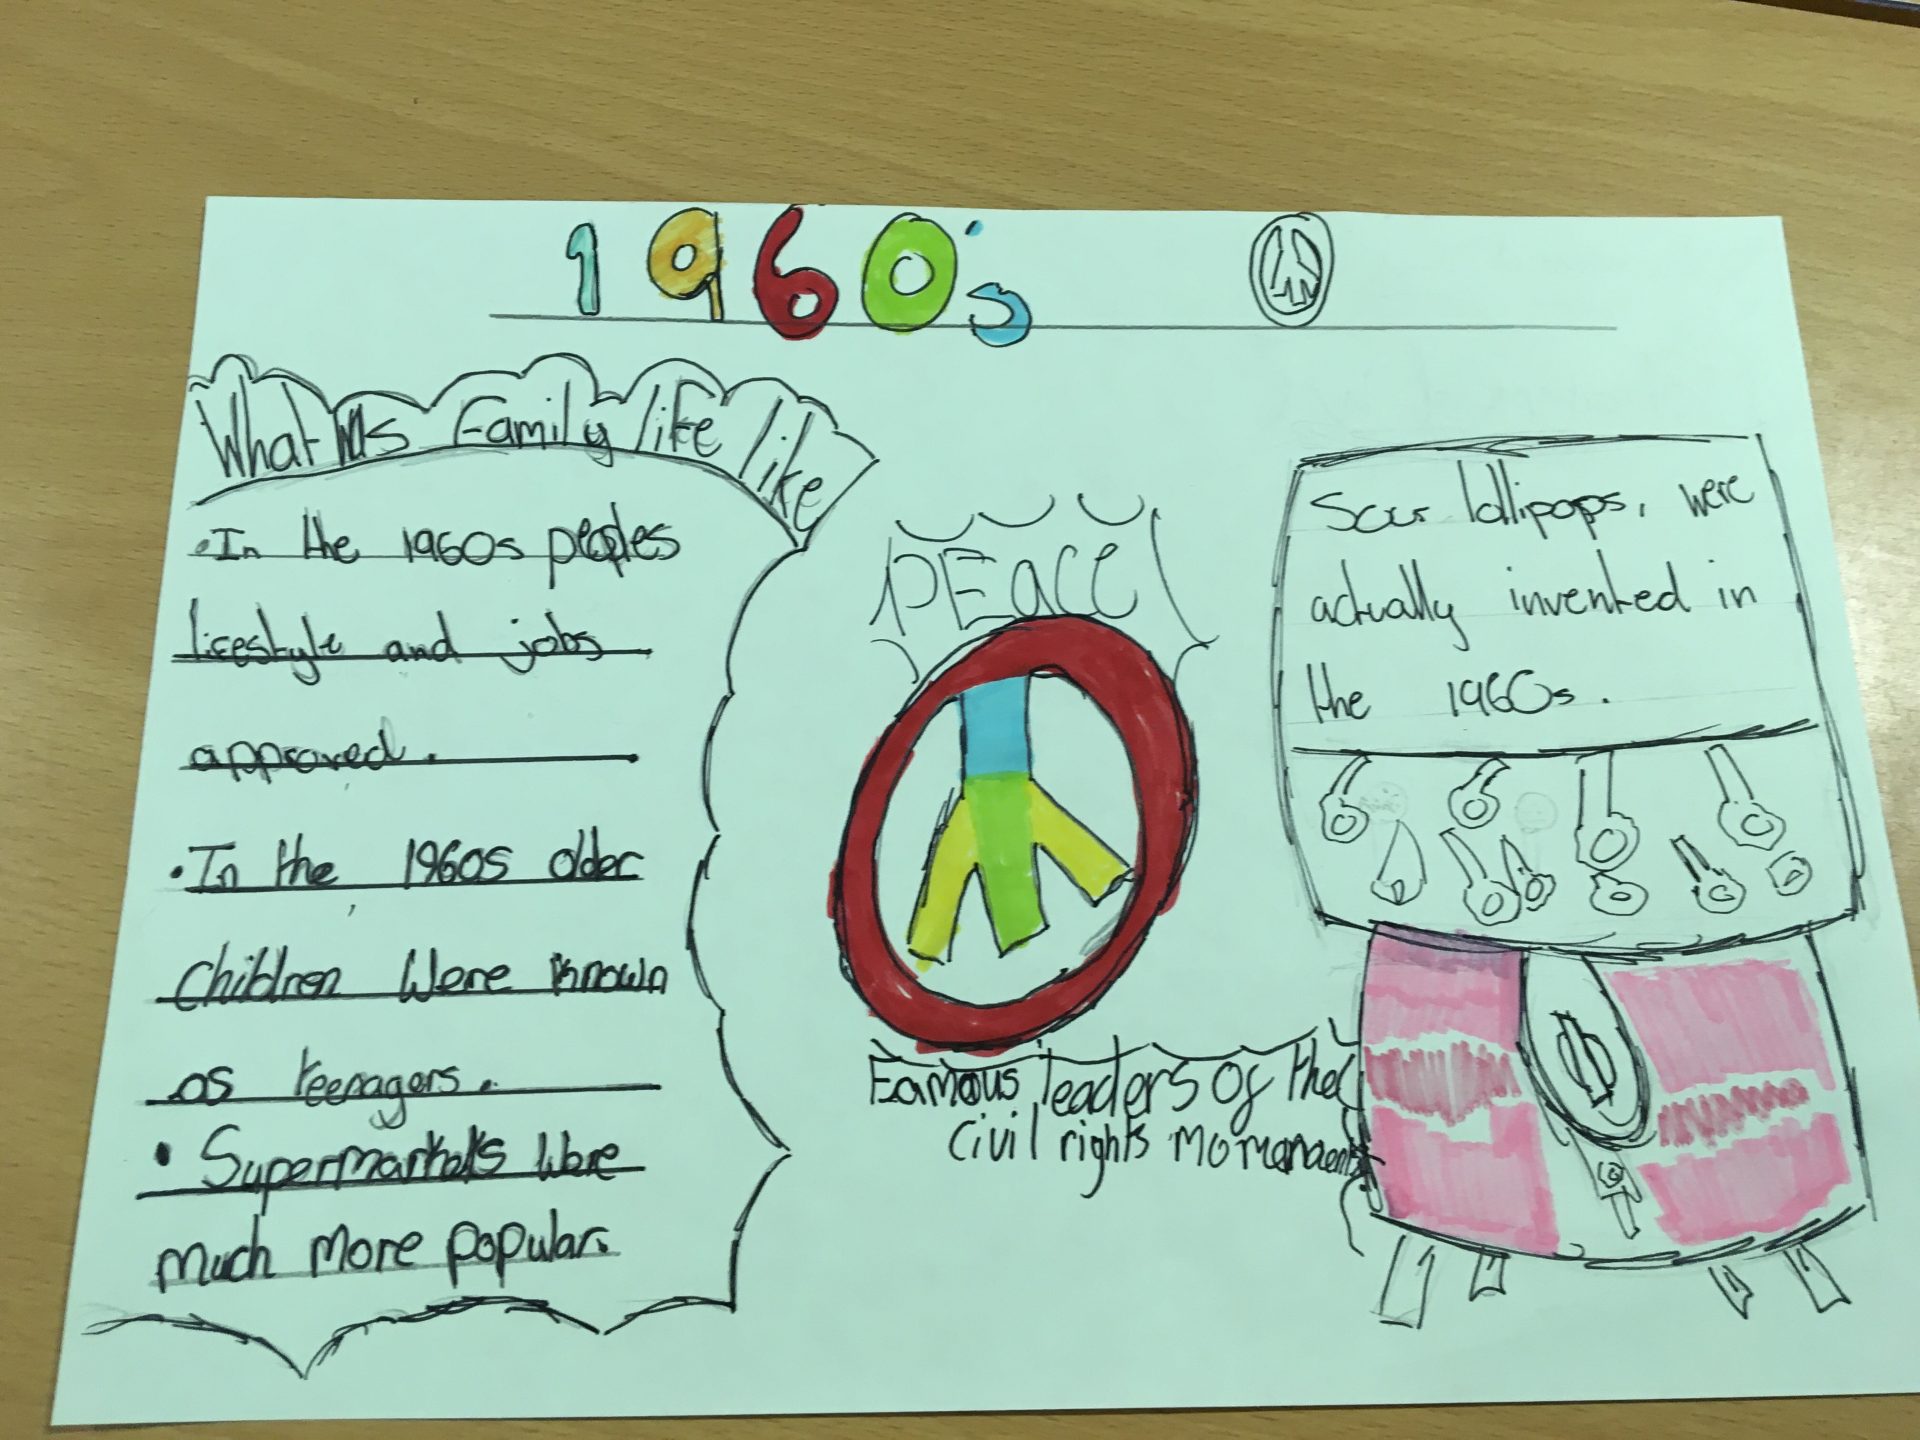 1960's
What was Family life like
• In the 1960s peoples
lifestyle and jobs
approved.
• In the 1960s older
Children Were known
as teenagers.
• Supermarkets Were
much more popular.
PEace
Famous leaders of the
civil rights
Sour lollipops, were
actually invented in
the 1960s.